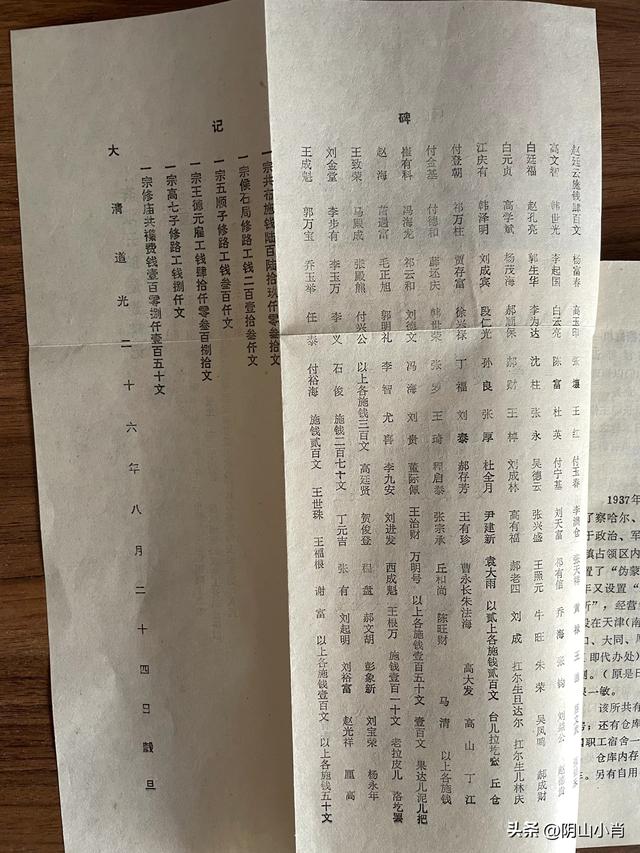 碑记
赵廷云施钱肆百文 杨富春 高玉印 张堰 王红 付玉春 李满仓 张天祥 黄林 王
高文智 韩世光 李起国 白云亮 陈富 杜英 付宁基 刘天富 祁有信 乔海 张钧 刘益公 赵德贵
白廷福 赵孔亮 郭生华 李为达 沈柱 张永 吴德云 张兴盛 王熙元 牛旺 朱荣 吴凤鸣 郝成财
白元贞 高学斌 杨茂海 郝顺保 郝财 王梓 刘成林 高有福 郝老四 刘成 扛尔生旦达尔 扛尔生儿林庆
江庆有 韩泽明 刘成宾 段仁光 孙良 张厚 杜全月 尹建新 袁大雨 以贰上各施钱贰百文 台儿拉圪 丘仓
付登朝 祁万柱 贾存富 徐兴禄 丁福 刘泰 郝存芳 王有珍 曹永长朱法海 高大发 高山 丁江
付金基 付德和 薛还庆 韩世荣 张岁 王琦 程启泰 张宗承 丘和尚 陈旺财 马清 以上各施钱
崔有科 冯海龙 祁云和 刘德文 冯海 刘贵 董际佩 王治财 万明号 以上各施钱壹百五十文 壹百文 果达儿泥儿把
赵海 苗遇富 毛正旭 郭明礼 李智 尤喜 李九安 刘进发 西成魁 王根万 施钱壹百一十文 老拉皮儿 洛圪
王致荣 马殿成 张殿熊 付兴公 以上各施钱三百文 高廷贤 贺俊登 程盘 郝文胡 彭象新 刘宝荣 杨永年
刘金堂 李步有 李玉万 李义 石俊 施钱二百七十文 丁元吉 张有 刘起明 刘裕富 赵光祥 厘高
王成魁 郭万宝 乔玉举 任泰 付裕海 施钱贰百文 王世珠 王福根 谢富 以上各施钱壹百文 以上各施钱五十文
一宗共布施钱陆百陆拾玖仟零叁拾文
一宗侯石局修路工钱二百壹拾叁仟文
一宗五顺子修路工钱叁百仟文
一宗王德元雇工钱肆拾仟零叁百捌拾文
一宗高七子修路工钱捌仟文
一宗修庙共攥费钱壹百零捌仟壹百五十文
大清道光二十六年八月二十四日毂旦
1937年
了察哈尔、
于政治、军
镇占领区内
置了“伪蒙
年又设置“
行”，经营
设在天津(南
口、大同、
即代办处)
。(原是日
一敏。
该所共有
；还有仓库
职工宿舍一
仓库内存
。另有自用
头条 @阴山小肖